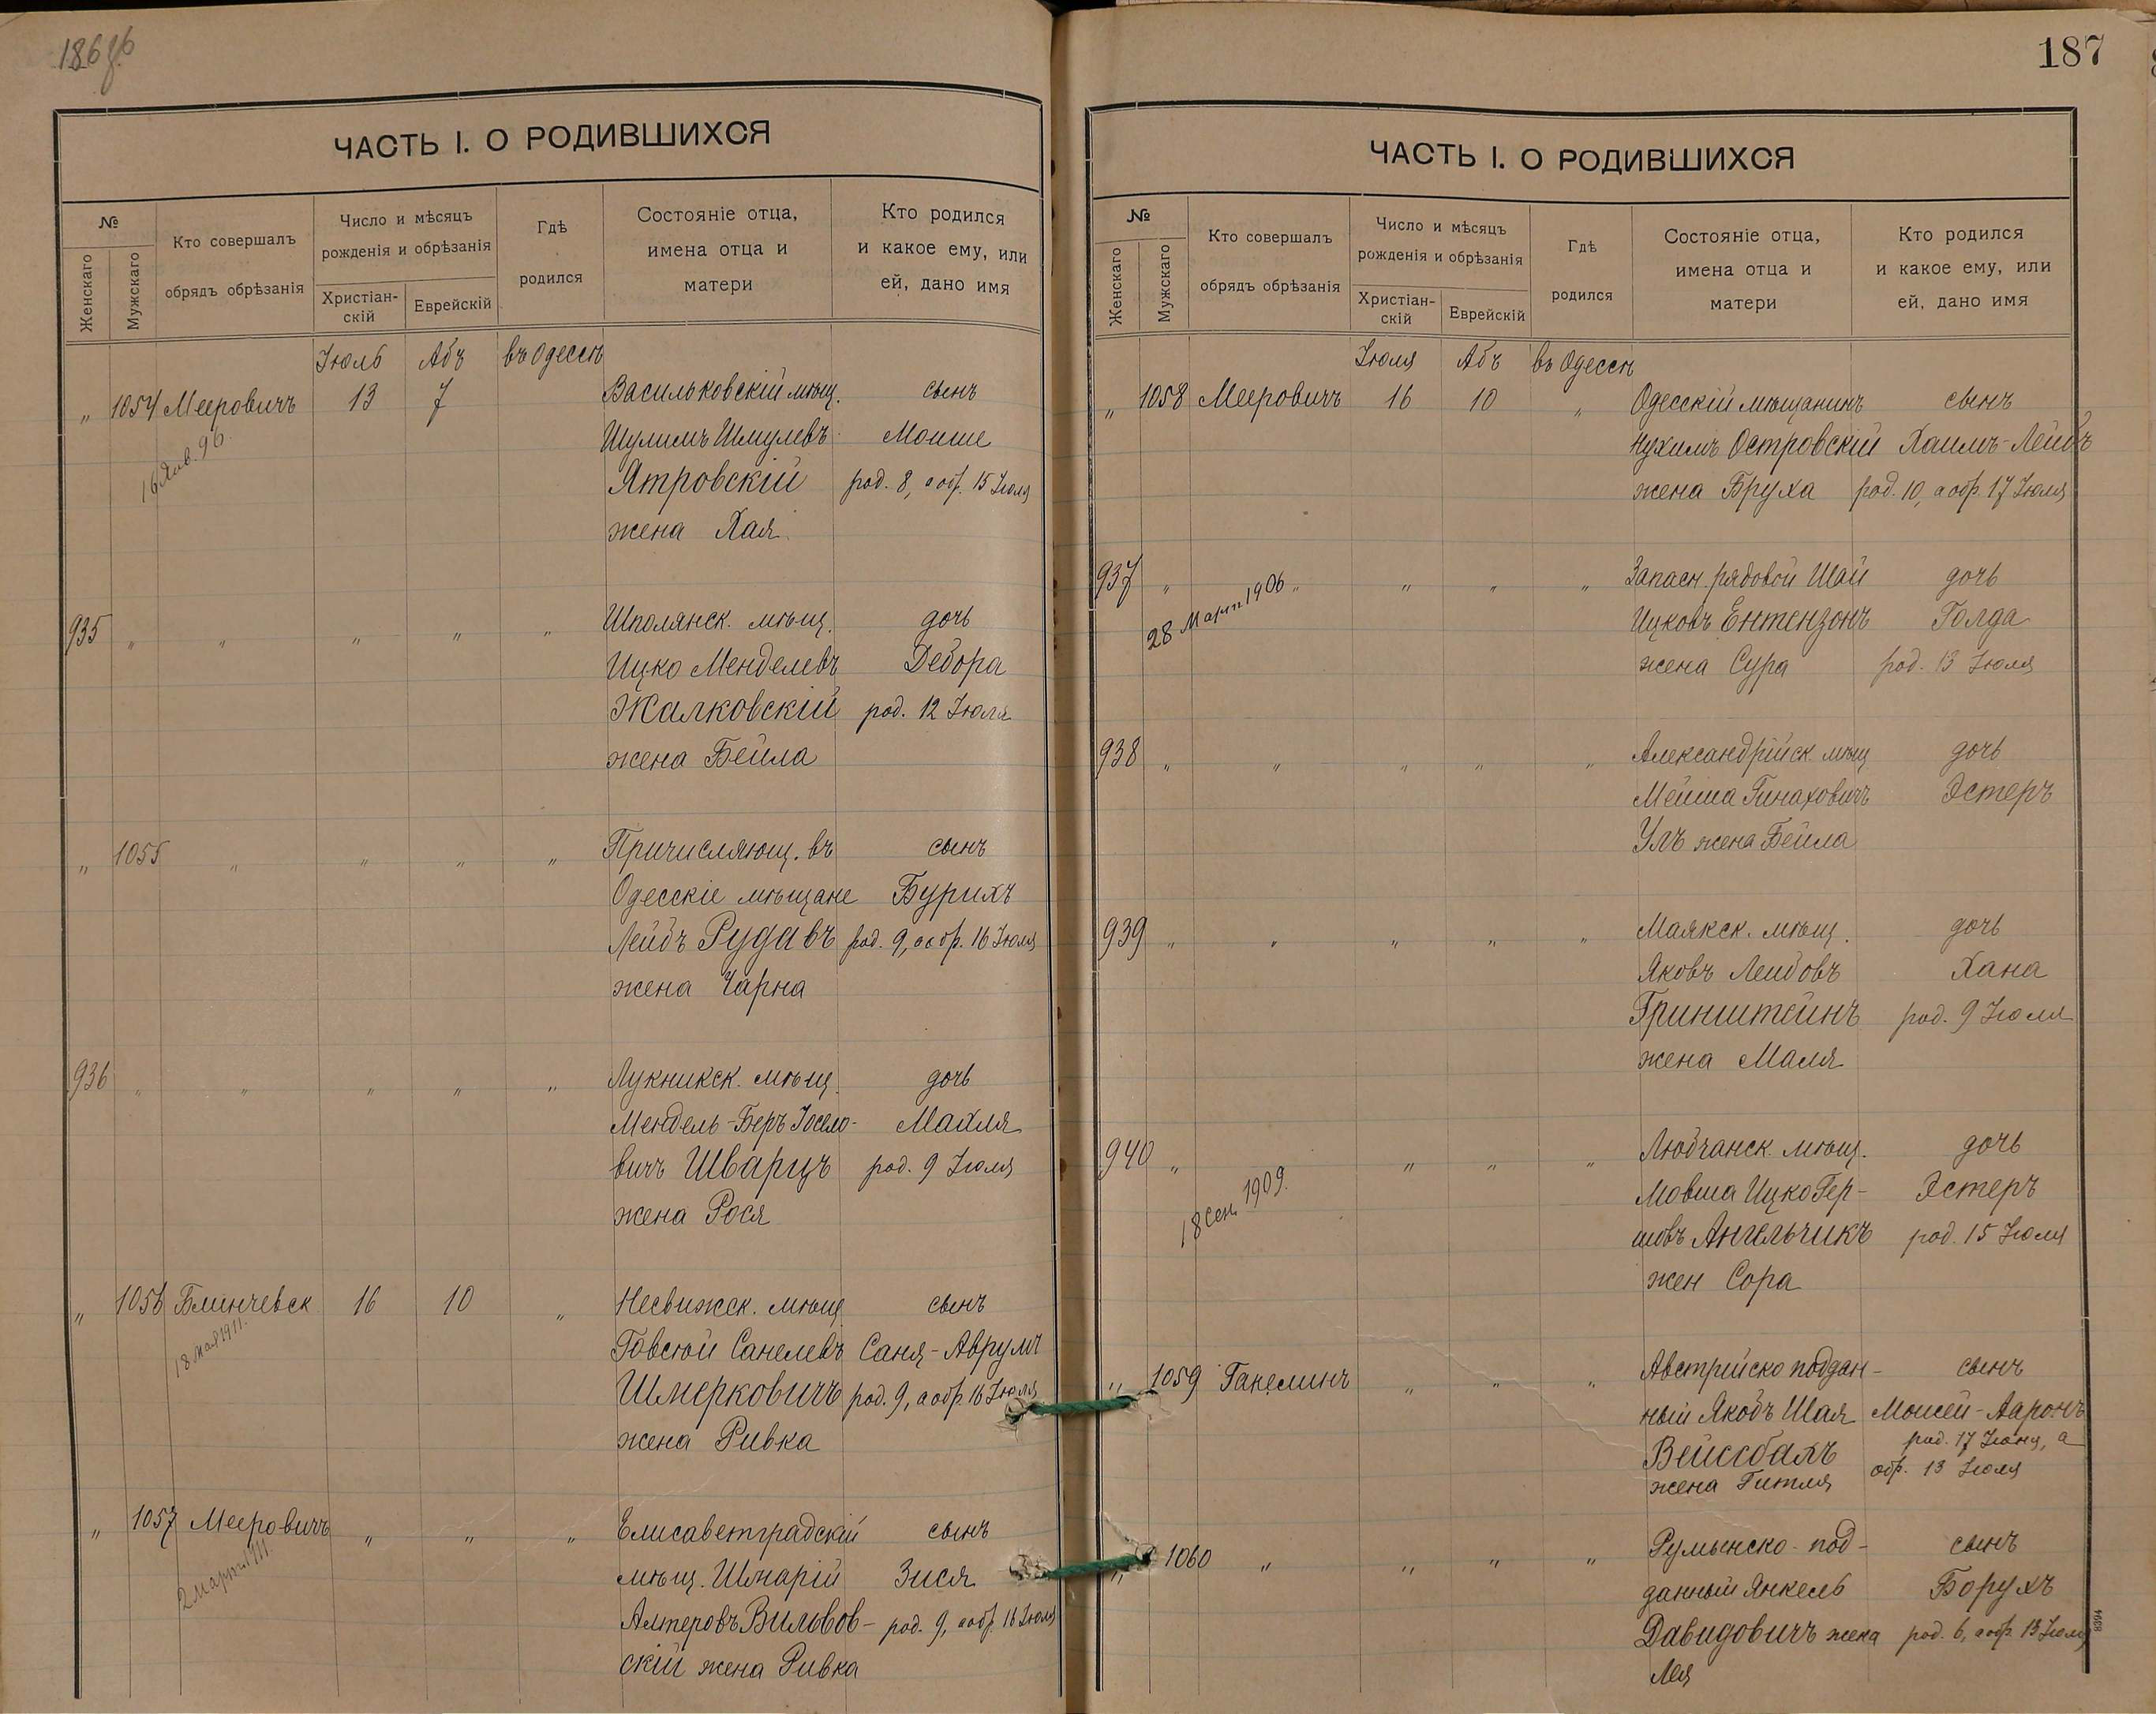 186 об
ЧАСТЬ I. О РОДИВШИХСЯ
№
Женскаго
Мужскаго
Кто совершалъ
обрядъ обрѣзанія
Число и мѣсяцъ
рожденія и обрѣзанія
Христіан-
скій
Еврейскій
Гдѣ
родился
Состояніе отца,
имена отца и
матери
Кто родился
и какое ему, или
ей, дано имя
Іюль Абъ въ Одессѣ
„ 1054 Мееровичъ 13 7 Васильковскій мѣщ. сынъ
16 Янв. 96.
Шулимъ Шмулевъ Моише
Ятровскій род. 8, а обр. 15 Іюля
жена Хая
935 „ „ „ „ „ Шполянск. мѣщ. дочь
Ицко Менделевъ Дебора
Жалковскій род. 12 Іюля
жена Бейла
„ 1055 „ „ „ „ Причисляющ. въ сынъ
Одесскіе мѣщане Бурихъ
Лейбъ Рудавъ род. 9, а обр. 16 Іюля
жена Чарна
936 „ „ „ „ „ Лукникск. мѣщ. дочь
Мендель-Беръ Іосело- Махля
вичъ Шварцъ род. 9 Іюля
жена Рося
„ 1056 Блинчевск 16 10 „ Несвижск. мѣщ. сынъ
18 Мая 1911.
Говсюй Санелевъ Саня-Аврумъ
Шмерковичъ род. 9, а обр. 16 Іюля
жена Ривка
„ 1057 Мееровичъ „ „ „ Елисаветградскій сынъ
2 Марта 1911
мѣщ. Шнарій Зися
Алтеровъ Вильвов- род. 9, а обр. 16 Іюля
скій жена Ривка
187
ЧАСТЬ I. О РОДИВШИХСЯ
№
Женскаго
Мужскаго
Кто совершалъ
обрядъ обрѣзанія
Число и мѣсяцъ
рожденія и обрѣзанія
Христіан-
скій
Еврейскій
Гдѣ
родился
Состояніе отца,
имена отца и
матери
Кто родился
и какое ему, или
ей, дано имя
Іюля Абъ въ Одессѣ
„ 1058 Мееровичъ 16 10 „ Одесскій мѣщанинъ сынъ
Нухимъ Островскій Хаимъ-Лейбъ
жена Бруха род. 10, а обр. 17 Іюля
937 „ „ „ „ „ Запасн. рядовой Шай дочь
28 Март 1906
Ицковъ Ентензонъ Голда
жена Сура род. 13 Іюля
938 „ „ „ „ „ Александрійск. мѣщ. дочь
Мейша Пинаховичъ Эстеръ
Улъ жена Бейла
939 „ „ „ „ „ Маякск. мѣщ. дочь
Яковъ Лейбовъ Хана
Гринштейнъ род. 9 Іюля
жена Маля
940 „ „ „ „ Любчанск. мѣщ. дочь
18 Сен. 1909.
Мовша Ицко Гер- Эстеръ
шовъ Ангельчикъ род. 15 Іюля
жен Сора
„ 1059 Гакелинъ „ „ „ Австрійско поддан- сынъ
ный Якобъ Шая Моисей-Ааронъ
Вейссбахъ род. 17 Іюня, а
жена Гитля обр. 13 Іюля
„ 1060 „ „ „ „ Румынско-под- сынъ
данный Янкель Борухъ
Давидовичъ жена род. 6, а обр. 13 Іюля
Лея
8394